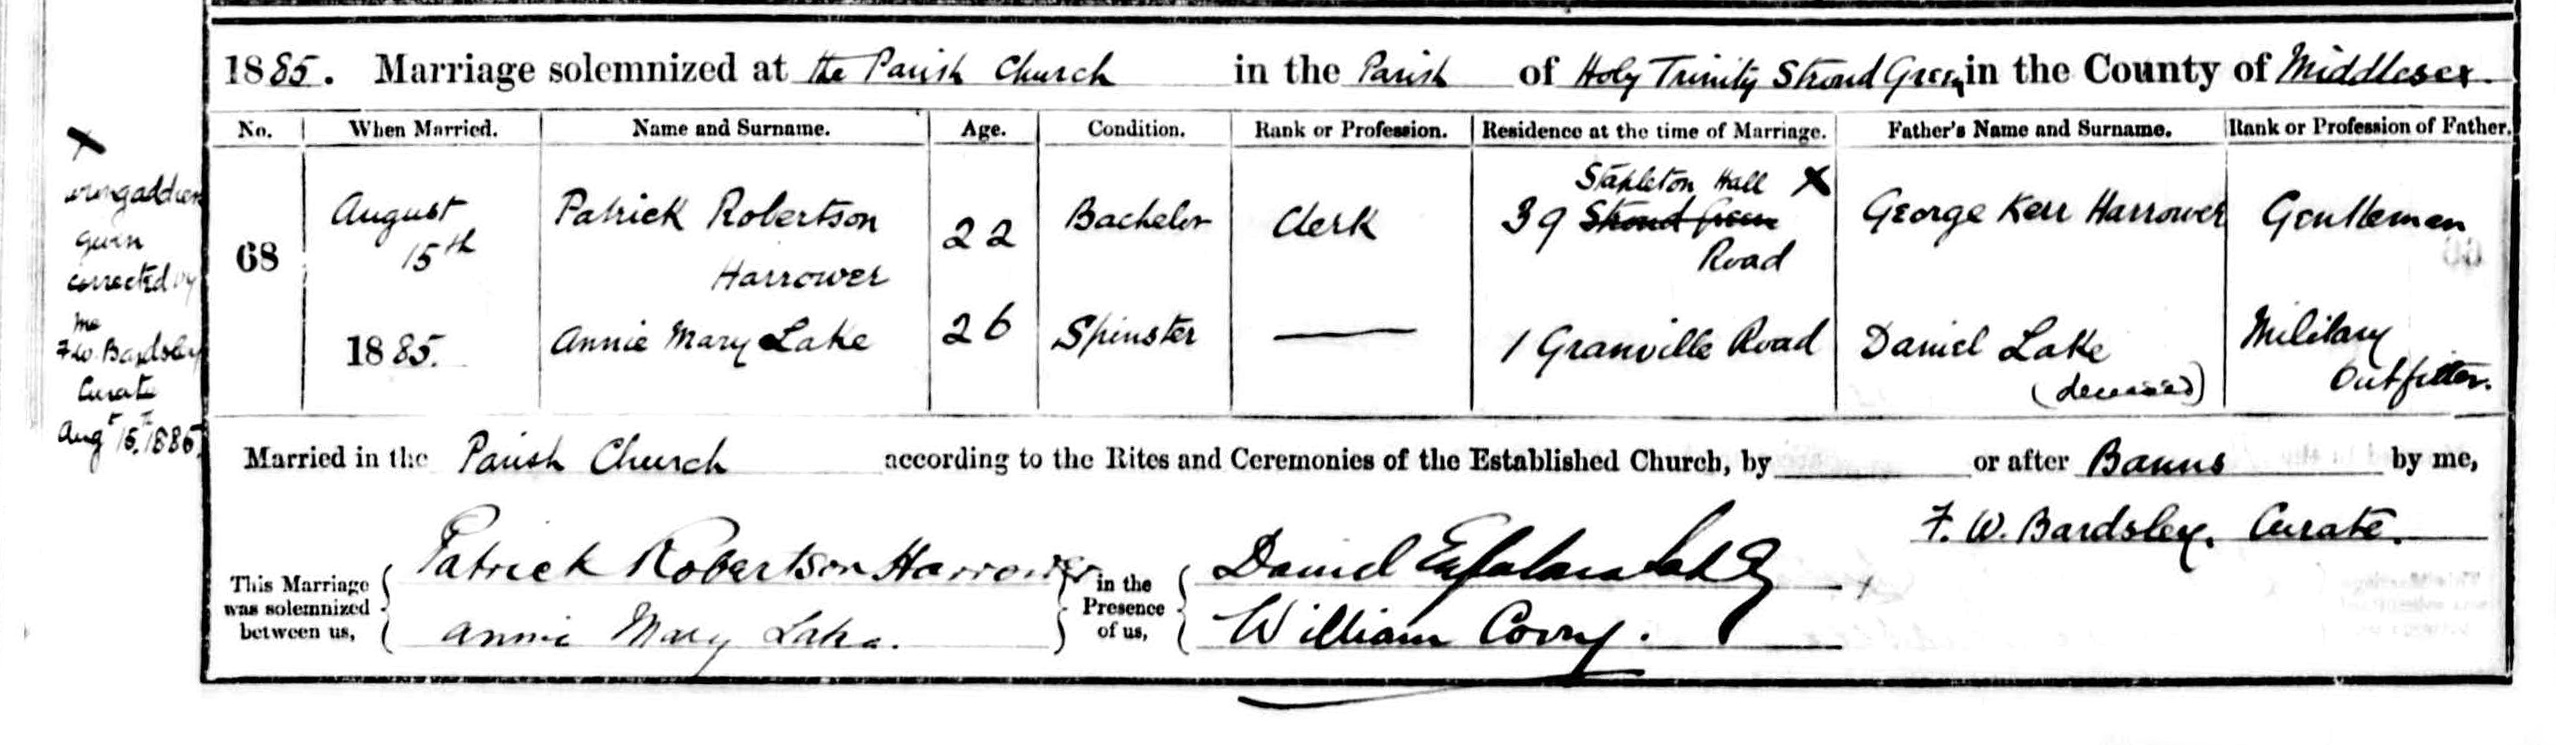 1885. Marriage solemnized at the Parish Church in the Parish of Holy Trinity Stroud Green in the County of Middlesex.
No. When Married. Name and Surname. Age. Condition. Rank or Profession. Residence at the time of Marriage. Father's Name and Surname. Rank or Profession of Father.
68 August 15th 1885.
Patrick Robertson Harrower 22 Bachelor Clerk 39 Stapleton Hall X Stroud Green Road George Kerr Harrower Gentleman
Annie Mary Lake 26 Spinster — 1 Granville Road Daniel Lake (deceased) Military Outfitter.
X
wrong address
given
corrected by
me
F. W. Bardsley
Curate
Augt 15th 1885.
Married in the Parish Church according to the Rites and Ceremonies of the Established Church, by or after Banns by me,
F. W. Bardsley. Curate.
This Marriage was solemnized between us, Patrick Robertson Harrower
Annie Mary Lake.
in the Presence of us, Daniel
William